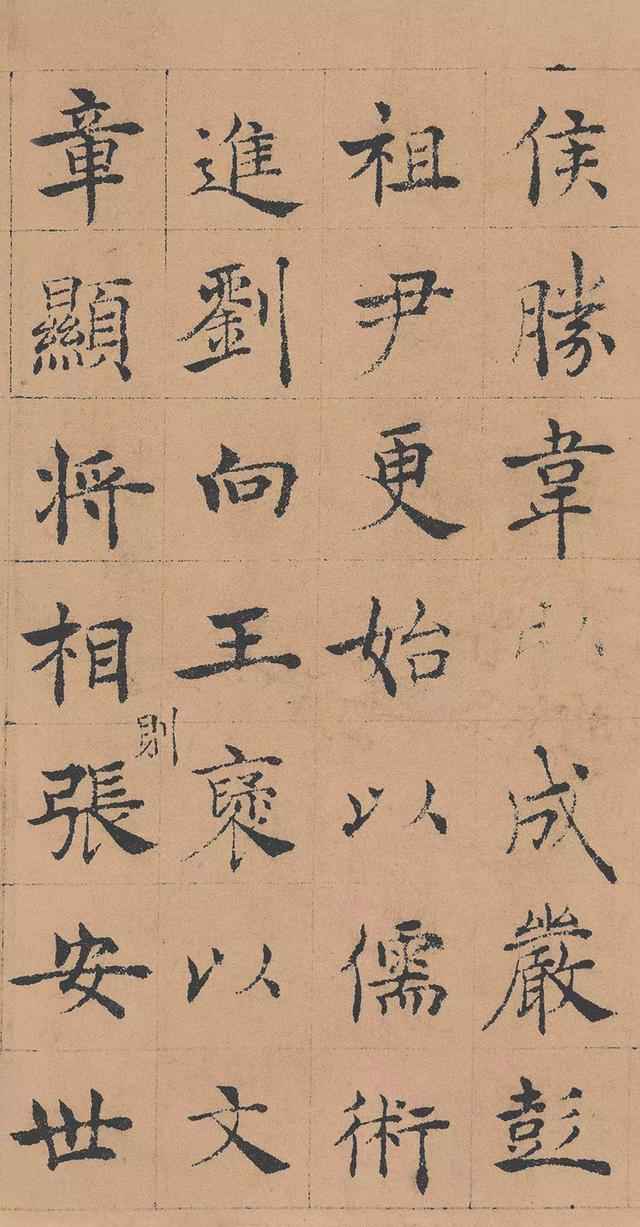 侯勝韋成嚴彭
祖尹更始以儒術
進劉向王襃以文
章顯將相則張安世